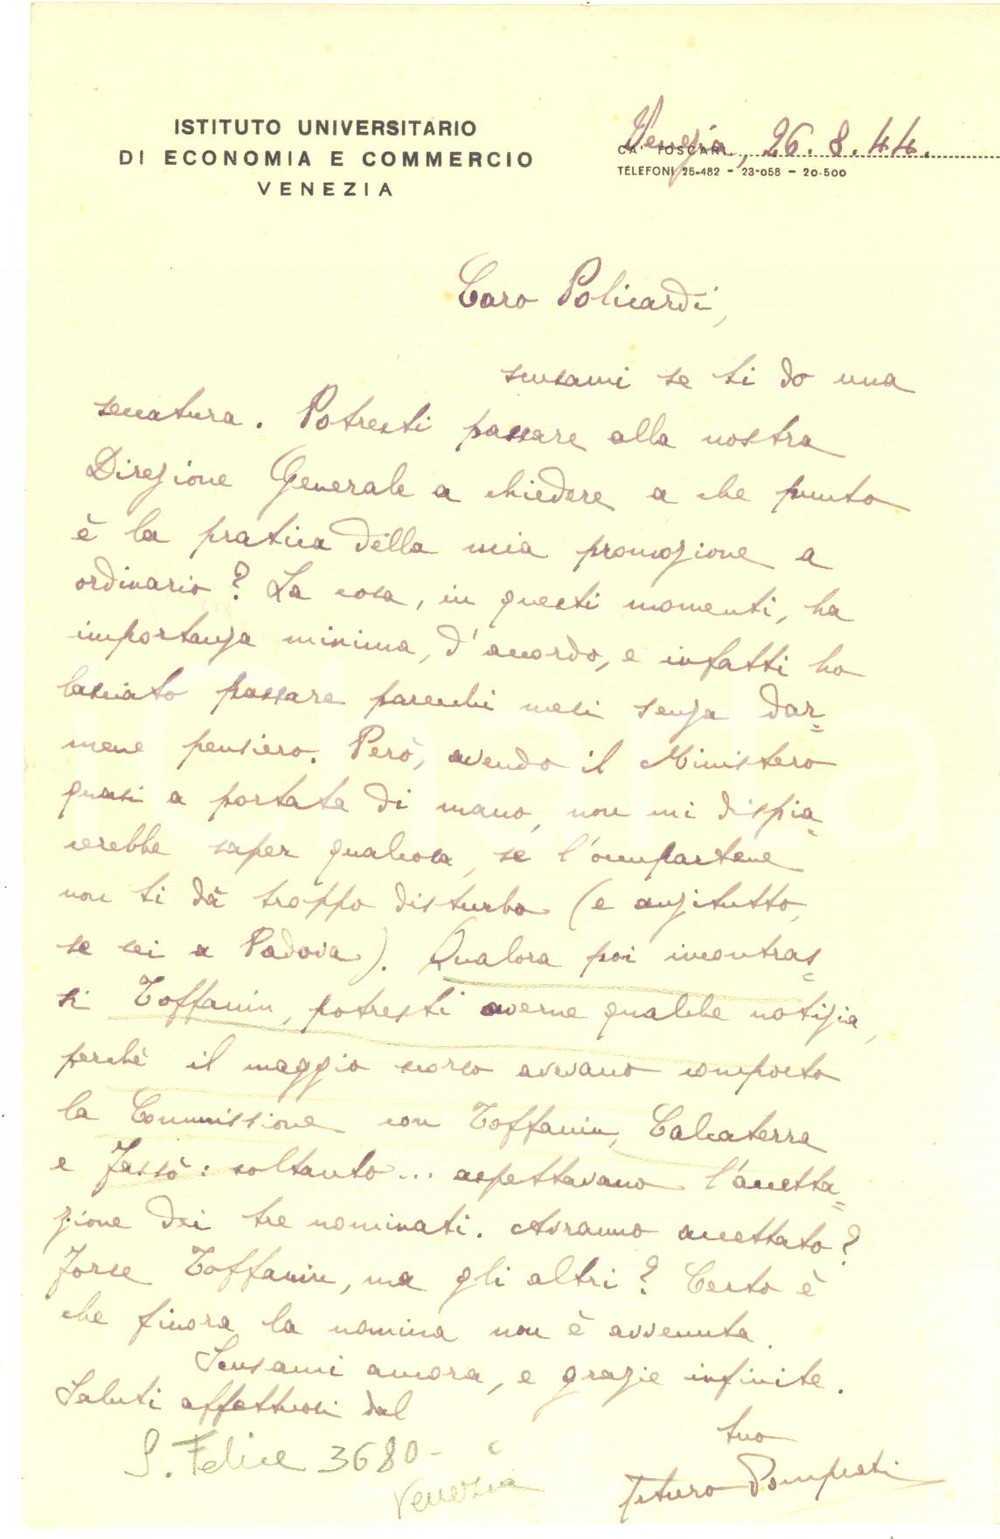 ISTITUTO UNIVERSITARIO
DI ECONOMIA E COMMERCIO
VENEZIA
Venezia, 26.8.44.
CA' FOSCARI
TELEFONI 25-482 - 23-058 - 20-500
Caro Policardi,
scusami se ti do una
seccatura. Potresti passare alla nostra
Direzione Generale a chiedere a che punto
è la pratica della mia promozione a
ordinario? La cosa, in questi momenti, ha
importanza minima, d'accordo, e infatti ho
lasciato passare parecchi mesi senza dar=
mene pensiero. Però, avendo il Ministero
quasi a portata di mano, non mi dispia=
cerebbe saper qualcosa, se l'occupartene
non ti dà troppo disturbo (e anzitutto,
se sei a Padova). Qualora poi incontras=
si Toffanin, potresti averne qualche notizia,
perchè il maggio scorso avevano composto
la Commissione con Toffanin, Calcaterra
e Jassò: soltanto... aspettavano l'accetta=
zione dei tre nominati. Avranno accettato?
Forse Toffanin, ma gli altri? Certo è
che finora la nomina non è avvenuta.
Scusami ancora, e grazie infinite.
Saluti affettuosi dal
tuo
Arturo Pompeati
S. Felice 3680 -
Venezia